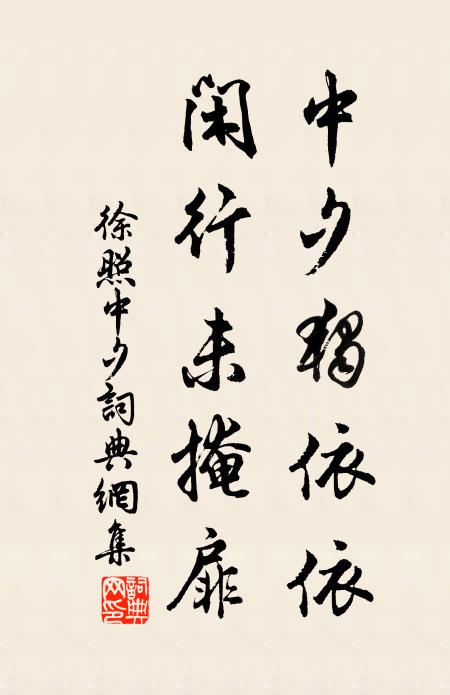 中夕獨依依
閑行未掩扉
徐照中夕詞典網集
詞典網印